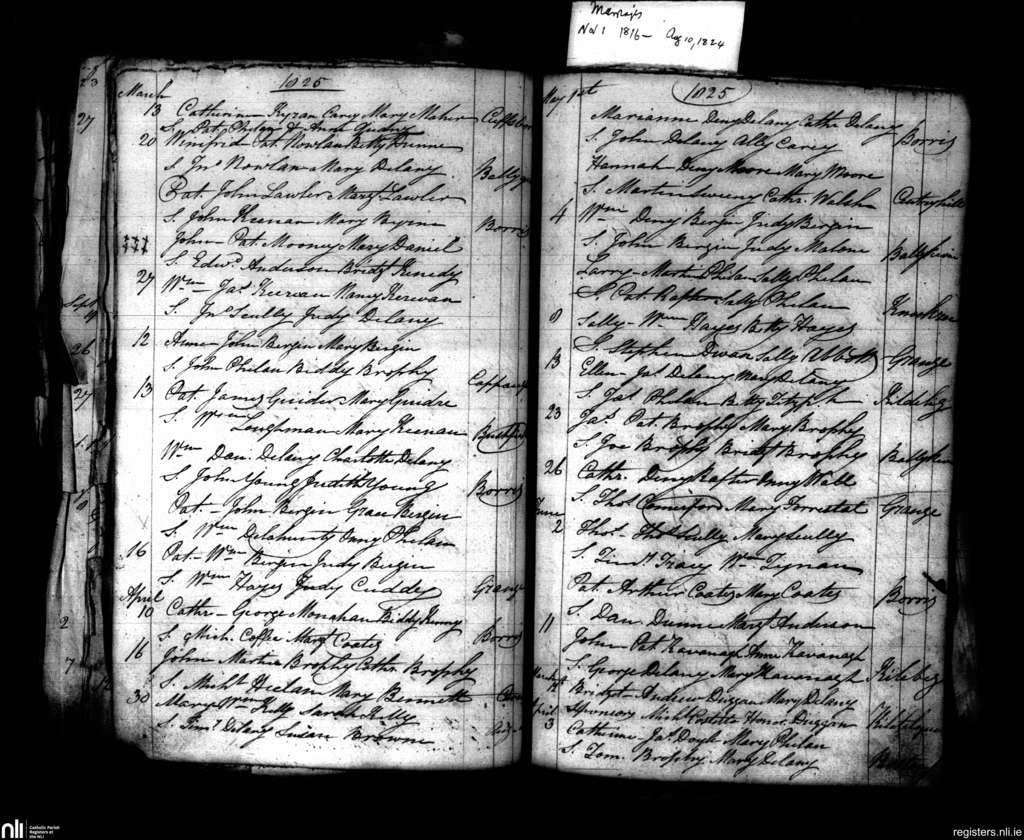 Marriages
Nov 1 1816 - Aug 10, 1824
1825
March
13 Catherine Kyran Carey Mary Maher
S. Pat. Phelan & Anne
20 Winifrid Pat. Nowlan Betty Dunne
S. Jno Nowlan Mary Delany
Pat. John Lawler Margt Lawler
S. John Keenan Mary Byrne Borris
John - Pat. Mooney Mary Daniel
S. Edwd. Anderson Bridgt Kenedy
27 Wm Jas. Kerwan Nancy Kerwan
S. Jno Scully Judy Delany
12 Anne - John Bergin Mary Bergin
S. John Phelan Biddy Brophy
13 Pat. James Guider Mary Guidre
S. Wm Loughman Mary Keenan
Wm Dan. Delany Charlotte Delany
S. John Young Judith Young Borris
Pat. - John Bergin Grace Bergin
S. Wm Delahunty Anny Phelan
16 Pat. - Wm Bergin Judy Bergin
S. Wm Hayes Judy Cuddy Grange
April
10 Cathr - George Monahan Biddy
S. Mich. Coffee Margt Coates Borris
16 John Martin Brophy Cathr Brophy
S. Michl Heelan Mary Bennett
30 Mary Wm Kelly Sarah Kelly
S. Timy Delany Susan Browne
May 1st
1825
Marianne Deny Delany Cathr Delany
S. John Delany Ally Carey Borris
Hannah Deny Moore Mary Moore
S. Martin Cathr. Walsh
4 Wm Deny Bergin Judy Bergin
S. John Bergin Judy Malone
Larry - Martin Phelan Sally Phelan
S. Pat. Rafter Sally Phelan
8 Sally - Wm Hayes Betty Hayes
S. Stephen Dwan Sally Abbott Grange
13 Ellen - Jas. Delany Mary Delany
S. Jas. Phelan Betty
23 Jas. Pat. Brophy Mary Brophy
S. Joe Brophy Bridgt Brophy
26 Cathr. Deny Rafter Anny Wall
S. Thos. Comerford Mary Forrestal Grange
June
2 Thos. - Thos Scully Mary Scully
S. Timy. Tracy Wm Tynan
Pat. Arthur Coates Mary Coates Borris
S. Dan. Dunne Margt Anderson
11 John - Pat. Kavanagh Anne Kavanagh
S. George Delany Mary Kavanagh
Bridget - Andrew Duggan Mary Delany
April
3 Catherine - Jas. Doyle Mary Phelan
S. Tom. Brophy Mary Delany
nli
Catholic Parish
Registers at
the NLI
registers.nli.ie